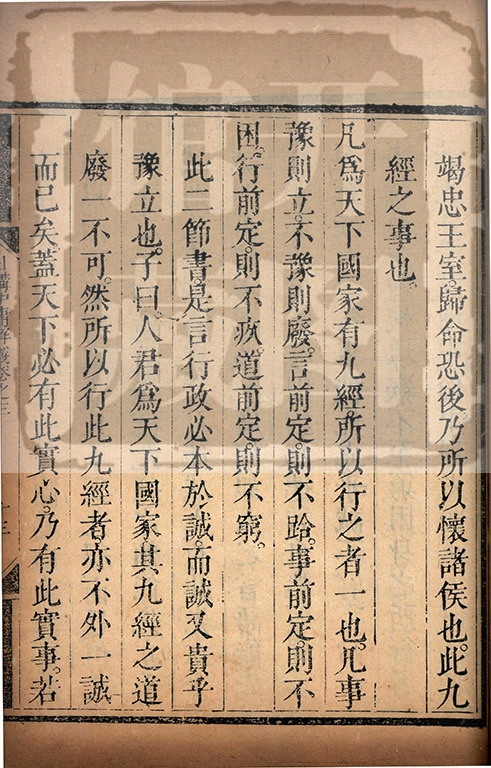 竭忠王室。歸命恐後。乃所以懷諸侯也。此九
經之事也。
凡爲天下國家有九經。所以行之者一也。凡事
豫則立。不豫則廢。言前定。則不跲。事前定。則不
困。行前定。則不疚。道前定。則不窮。
此二節書。是言行政必本於誠。而誠又貴乎
豫立也。子曰。人君爲天下國家。其九經之道
廢一不可。然所以行此九經者。亦不外一誠
而已矣。蓋天下必有此實心。乃有此實事。若